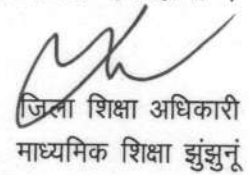 जिला शिक्षा अधिकारी
माध्यमिक शिक्षा झुंझुनूं